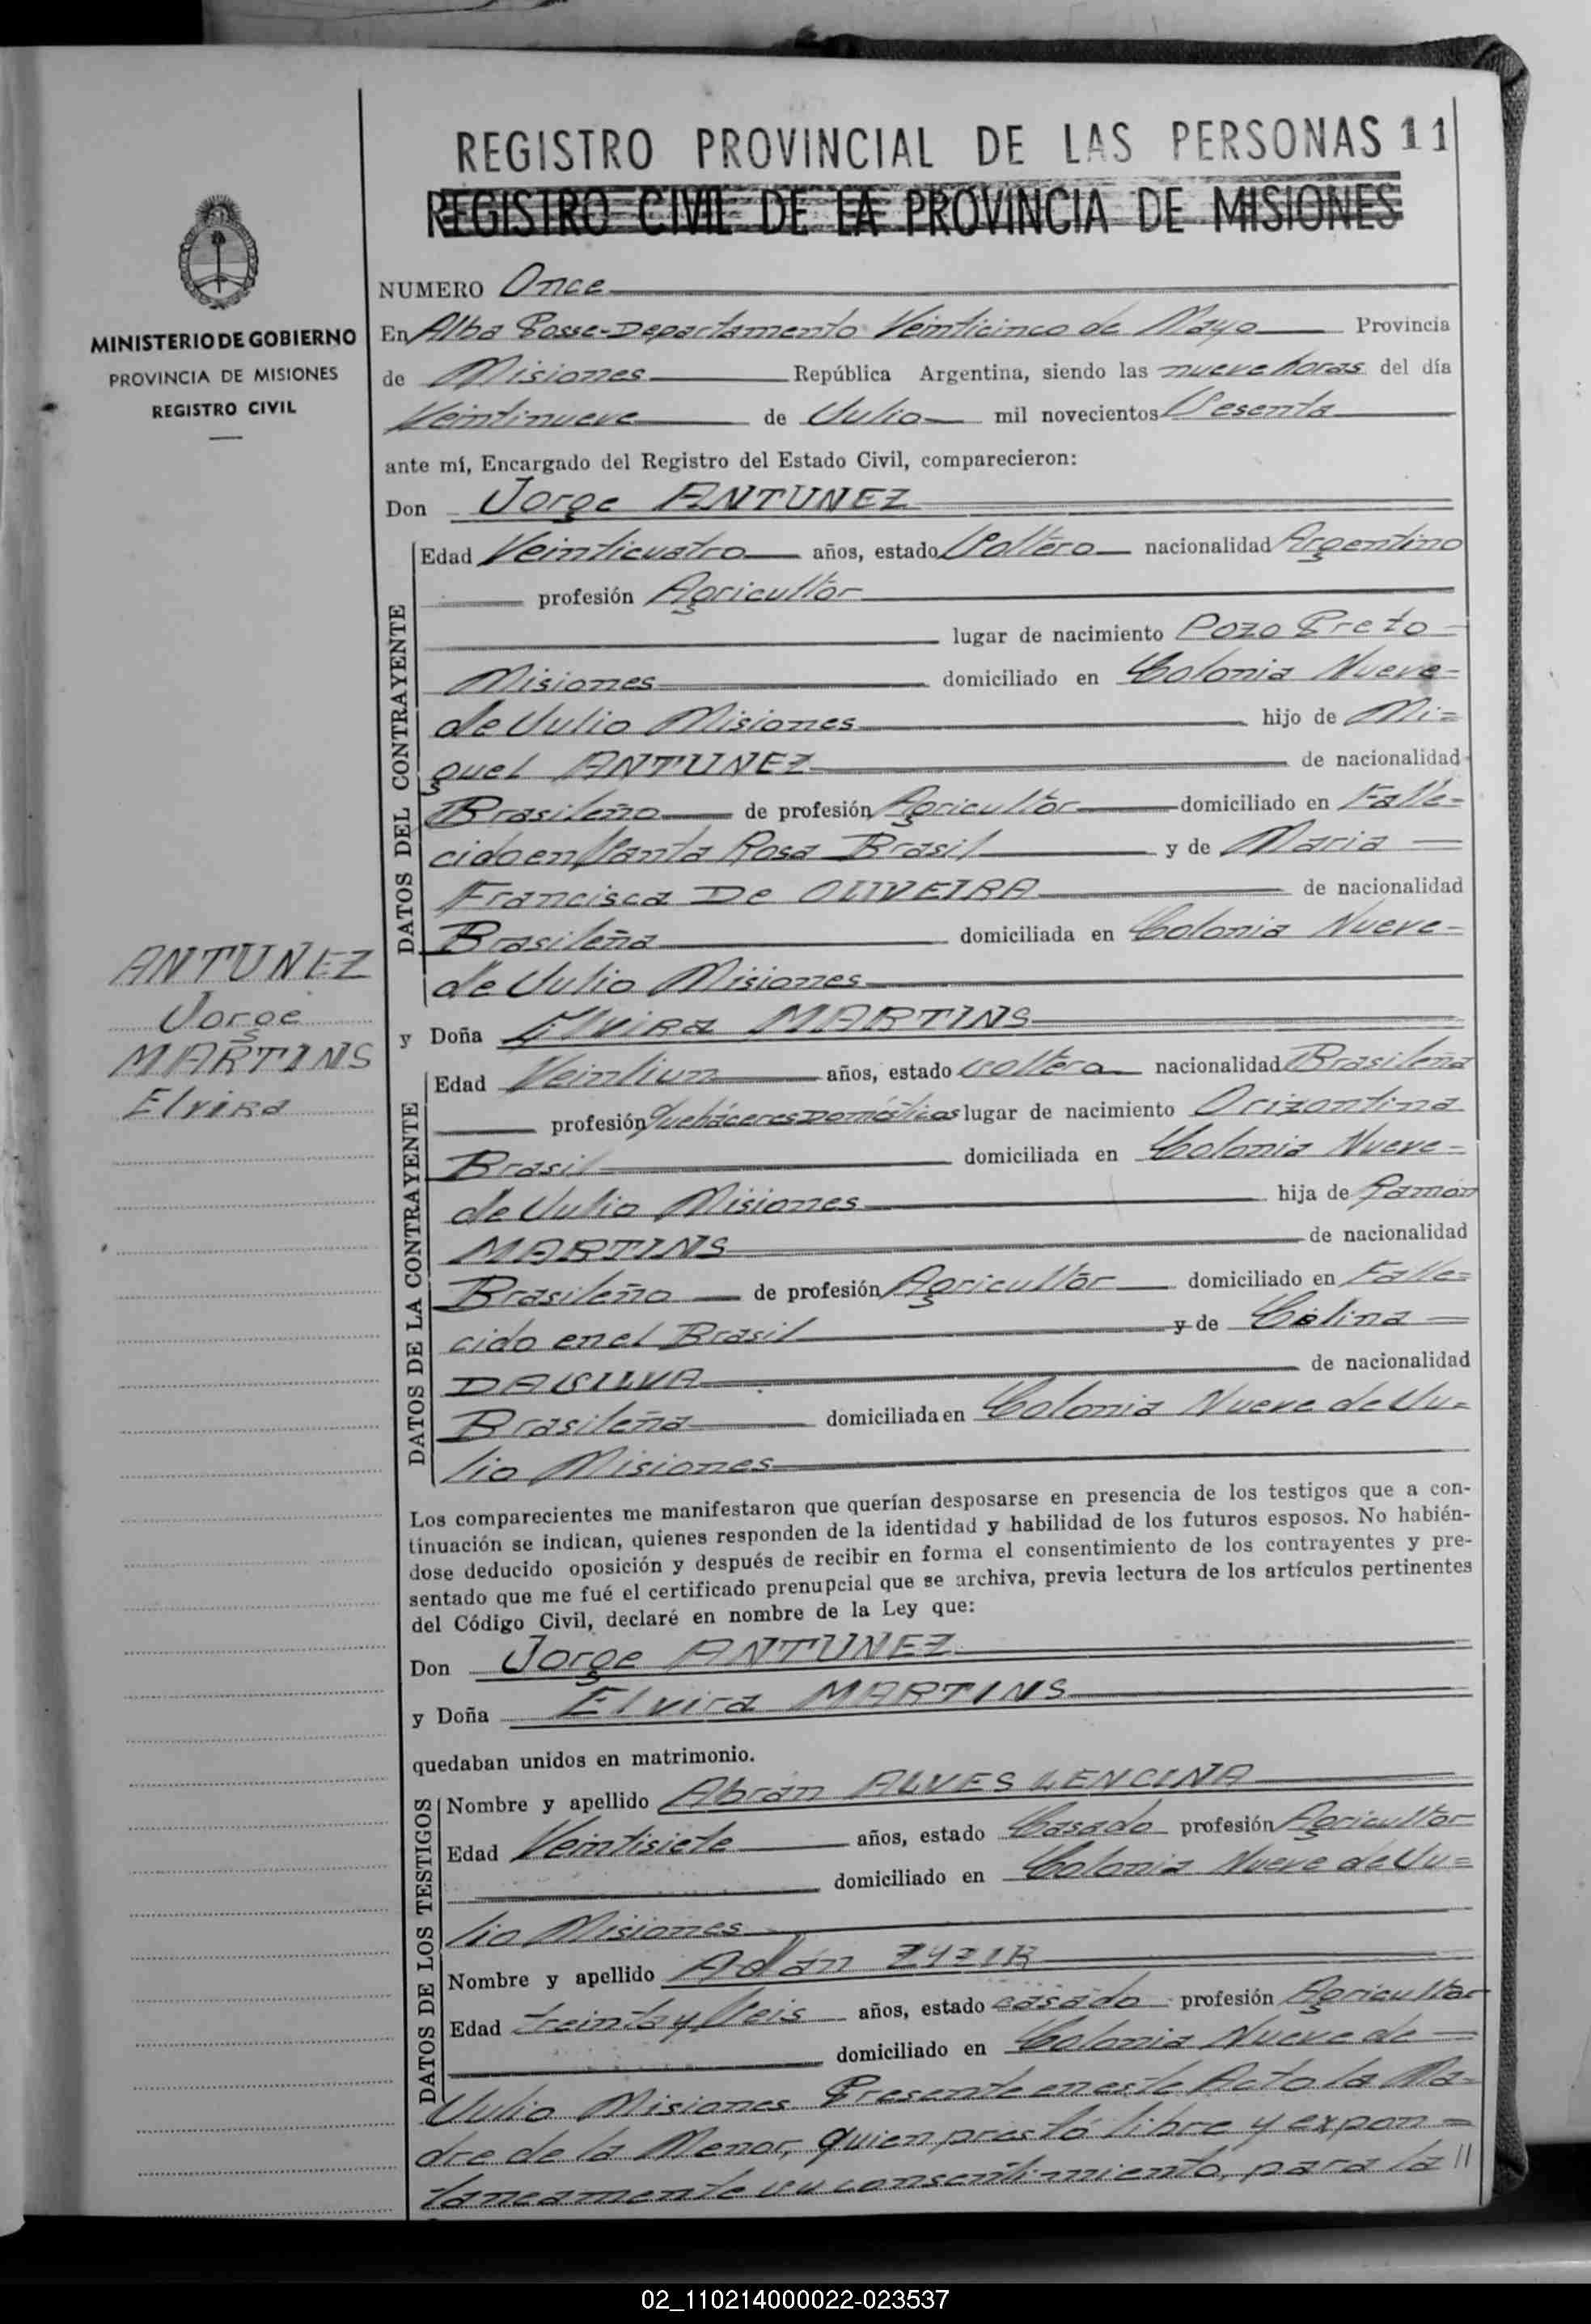 REGISTRO PROVINCIAL DE LAS PERSONAS 11
REGISTRO CIVIL DE LA PROVINCIA DE MISIONES
MINISTERIO DE GOBIERNO
PROVINCIA DE MISIONES
REGISTRO CIVIL
NUMERO Once
En Alba Posse-Departamento Veinticinco de Mayo Provincia
de Misiones República Argentina, siendo las nueve horas del día
Veintinueve de Julio mil novecientos Sesenta
ante mí, Encargado del Registro del Estado Civil, comparecieron:
Don Jorge ANTUNEZ
DATOS DEL CONTRAYENTE
Edad Veinticuatro años, estado Soltero nacionalidad Argentino
profesión Agricultor
lugar de nacimiento Pozo Preto
Misiones domiciliado en Colonia Nueve-
de Julio Misiones hijo de Mi=
guel ANTUNEZ de nacionalidad
Brasileño de profesión Agricultor domiciliado en Falle-
cido en Santa Rosa Brasil y de Maria
Francisca De OLIVEIRA de nacionalidad
Brasileña domiciliada en Colonia Nueve-
de Julio Misiones
ANTUNEZ
Jorge
MARTINS
Elvira
y Doña Elvira MARTINS
DATOS DE LA CONTRAYENTE
Edad Veintiun años, estado soltera nacionalidad Brasileña
profesión Quehaceres Domésticos lugar de nacimiento Orizontina
Brasil domiciliada en Colonia Nueve-
de Julio Misiones hija de Ramón
MARTINS de nacionalidad
Brasileño de profesión Agricultor domiciliado en Falle=
cido en el Brasil y de Celina
DA SILVA de nacionalidad
Brasileña domiciliada en Colonia Nueve de Ju=
lio Misiones
Los comparecientes me manifestaron que querían desposarse en presencia de los testigos que a con-
tinuación se indican, quienes responden de la identidad y habilidad de los futuros esposos. No habién-
dose deducido oposición y después de recibir en forma el consentimiento de los contrayentes y pre-
sentado que me fué el certificado prenupcial que se archiva, previa lectura de los artículos pertinentes
del Código Civil, declaré en nombre de la Ley que:
Don Jorge ANTUNEZ
y Doña Elvira MARTINS
quedaban unidos en matrimonio.
DATOS DE LOS TESTIGOS
Nombre y apellido Abrán ALVES LENCINA
Edad Veintisiete años, estado Casado profesión Agricultor
domiciliado en Colonia Nueve de Ju=
lio Misiones
Nombre y apellido Adán ZYZIK
Edad treinta y Seis años, estado casado profesión Agricultor
domiciliado en Colonia Nueve de
Julio Misiones Presente en este Acto la Ma-
dre de la Menor, quien prestó libre y expon=
taneamente su consentimiento, para la //
02_110214000022-023537